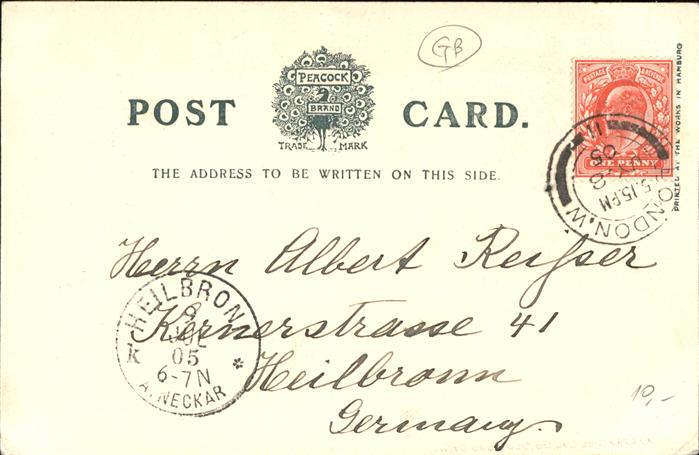 GB
PEACOCK
BRAND
TRADE MARK
POST CARD.
THE ADDRESS TO BE WRITTEN ON THIS SIDE.
POSTAGE REVENUE
ONE PENNY
PRINTED AT THE WORKS IN HAMBURG
LONDON.W
5.15.PM
11
Herrn Albert
Kernerstrasse 41
Heilbronn
Germany.
HEILBRONN
JUL
05
6-7N
K *
A. NECKAR
10,-